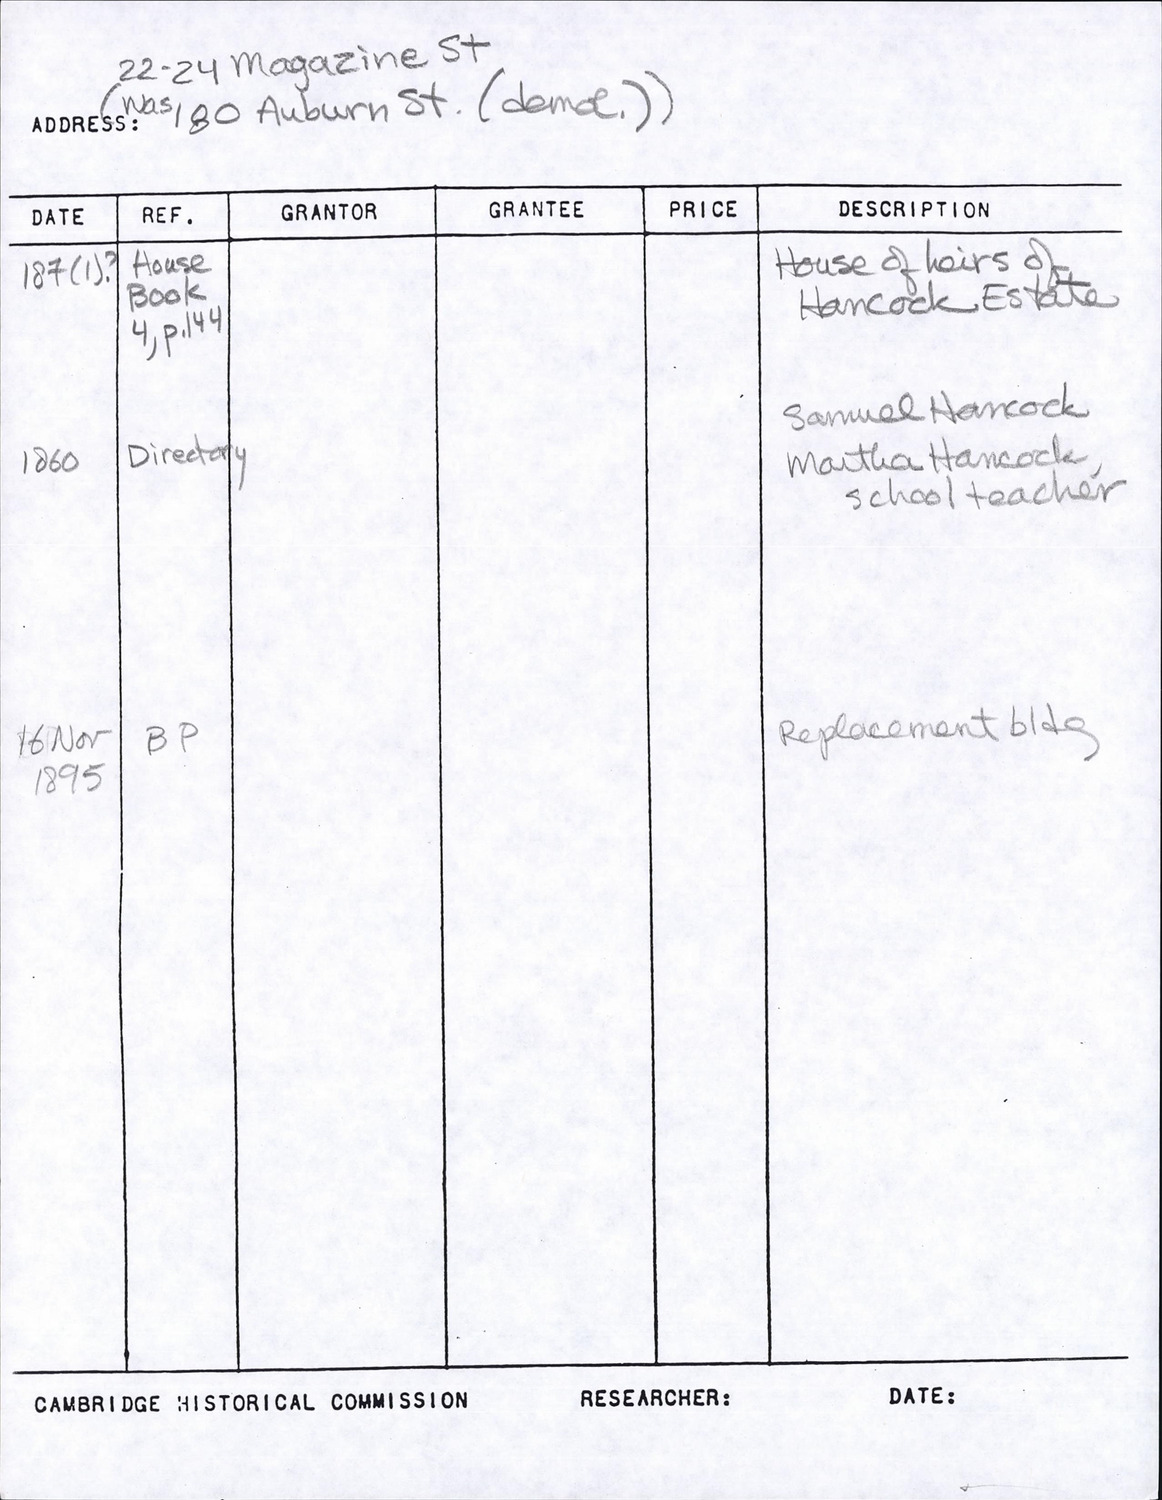 22-24 Magazine St
(was 180 Auburn St. (demol.))
ADDRESS:
DATE REF. GRANTOR GRANTEE PRICE DESCRIPTION
187(1)? House House of heirs of
Book Hancock Estate
4, p.144
Samuel Hancock
1860 Directory Martha Hancock,
school teacher
16 Nov BP Replacement bldg
1895
CAMBRIDGE HISTORICAL COMMISSION RESEARCHER: DATE: